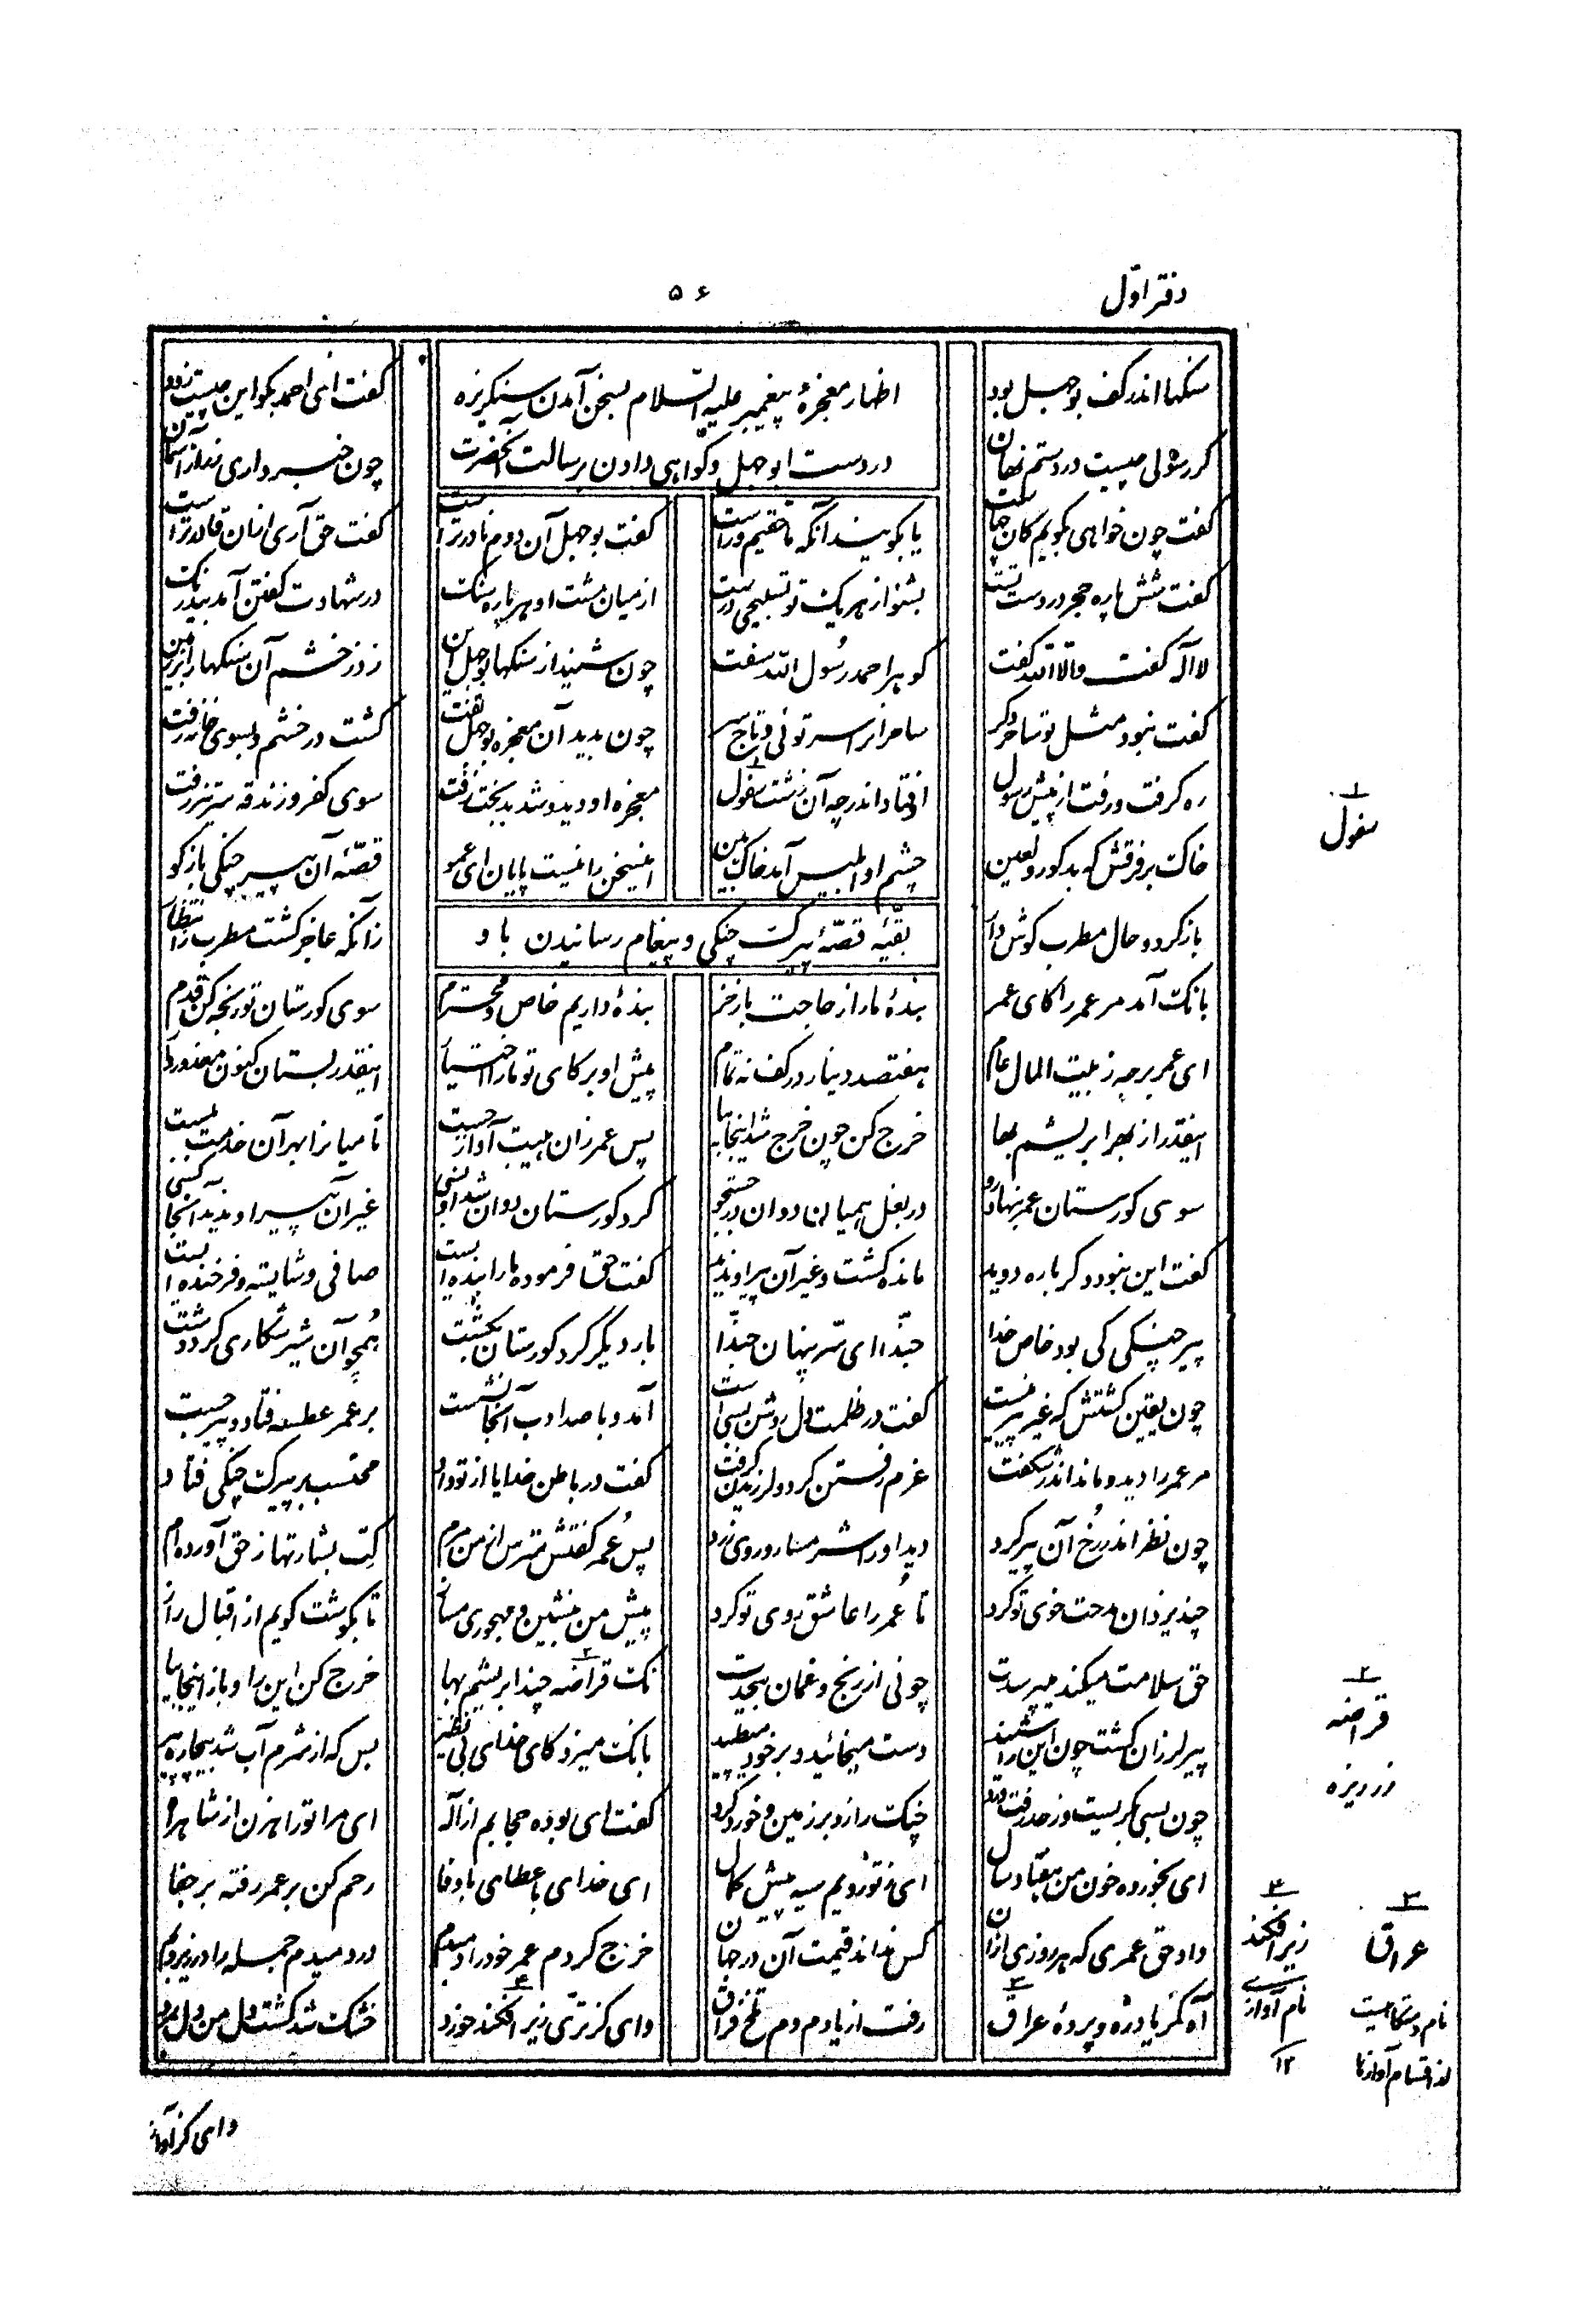 دفتر اوّل
۵۶
سنکها اندر کف بوجهل بود
اظهار معجزهٔ پیغمبر علیه السّلام بسخن آمدن سنکریزه
کفت ای احمد بکو این چیست زود
کر رسولی چیست در دستم نهان
در دست ابوجهل و کواهی دادن برسالت آنحضرت
چون خبر داری ز راز آسمان
کفت چون خواهی بکویم کان چهاست
یا بکویند آنکه ما حقیم و راست
کفت بوجهل آن دوم نادرتر است
کفت حق آری از آن قادرتر است
کفت شش پاره حجر در دست تست
بشنو از هر یک تو تسبیحی درست
از میان مشت او هر پاره سنک
در شهادت کفتن آمد بیدرنک
لا اله کفت و الّا الله کفت
کوهر احمد رسول الله سفت
چون شنید از سنکها بوجهل این
زد ز خشم آن سنکها را بر زمین
کفت نبود مثل تو ساحر دکر
ساحرانرا سر توئی و تاج سر
چون بدید آن معجزه بوجل تفت
کشت در خشم و بسوی خانه رفت
ره کرفت و رفت از پیش رسول
افتاد اندر چه آن زشت سفول
معجزه او دید و شد بدبخت زفت
سوی کفر و زندقه سرتیز رفت
خاک بر فرقش که بد کور و لعین
چشم او ابلیس آمد خاک بین
اینسخن را نیست پایان ای عمو
قصّهٔ آن پیر چنکی باز کو
باز کرد و حال مطرب کوش دار
بقیّه قصّهٔ پیرک چنکی و پیغام رسانیدن باو
زآنکه عاجز کشت مطرب ز انتظار
بانک آمد مر عمر را کای عمر
بندهٔ ما را ز حاجت باز خر
بندهٔ داریم خاص و محترم
سوی کورستان تو رنجه کن قدم
ای عمر برجه ز بیت المال عام
هفتصد دینار در کف نه تمام
پیش او بر کای تو ما را اختیار
اینقدر بستان کنون معذور دار
اینقدر از بهر ابریشم بها
خرج کن چون خرج شد اینجا بیا
پس عمر زان هیبت آواز جست
تا میانرا بهر آن خدمت ببست
سوی کورستان عمر بنهاد رو
در بغل همیان دوان در جستجو
کرد کورستان دوان شد او بسی
غیر آن پیر او ندید آنجا کسی
کفت این نبود دکر باره دوید
مانده کشت و غیر آن پیر او ندید
کفت حق فرموده ما را بنده ایست
صافی و شایسته و فرخنده ایست
پیر چنکی کی بود خاص خدا
حبّذا ای سرّ پنهان حبّذا
بار دیکر کرد کورستان بکشت
همچو آن شیر شکاری کرد دشت
چون یقین کشتش که غیر پیر نیست
کفت در ظلمت دل روشن بسی است
آمد و با صد ادب آنجا نشست
بر عمر عطسه فتاد و پیر جست
مر عمر را دید و ماند اندر شکفت
عزم رفتن کرد و لرزیدن کرفت
کفت در باطن خدایا از تو داد
محتسب بر پیرک چنکی فتاد
چون نظر اندر رخ آن پیر کرد
دید او را شرمسار و روی زرد
پس عمر کفتش مترس از من مرم
کت بشارتها ز حق آورده ام
چند یزدان مدحت خوی تو کرد
تا عمر را عاشق روی تو کرد
پیش من بنشین و مهجوری مساز
تا بکوشت کویم از اقبال راز
حق سلامت میکند میپرسدت
چونی از رنج و غمان بیحدت
نک قراضه چند ابریشم بها
خرج کن این را و باز اینجا بیا
پیر لرزان کشت چون این را شنید
دست میخائید و بر خود میطپید
بانک میزد کای خدای بی نظیر
بس که از شرم آب شد بیچاره پیر
چون بسی بکریست وز حد رفت درد
چنک را زد بر زمین و خورد کرد
کفت ای بوده حجابم از اله
ای مرا تو راهزن از شاهراه
ای بخورده خون من هفتاد سال
ای ز تو رویم سیه پیش کمال
ای خدای با عطای با وفا
رحم کن بر عمر رفته بر جفا
داد حق عمری که هر روزی از آن
کس نداند قیمت آن در جهان
خرج کردم عمر خود را دمبدم
در دمیدم جمله را در زیر و بم
آه کز یاد ره و پردهٔ عراق
رفت از یادم دم تلخ فراق
وای کز ترّی زیر افکند خورد
خشک شد کشت دل من دل بمرد
۱
سفول
۲
قراضه
زر ریزه
۳
عراق
نام دستکاهیست
از اقسام آوازها
۴
زیر افکند
نام آواز
۱۲
وای کز آواز